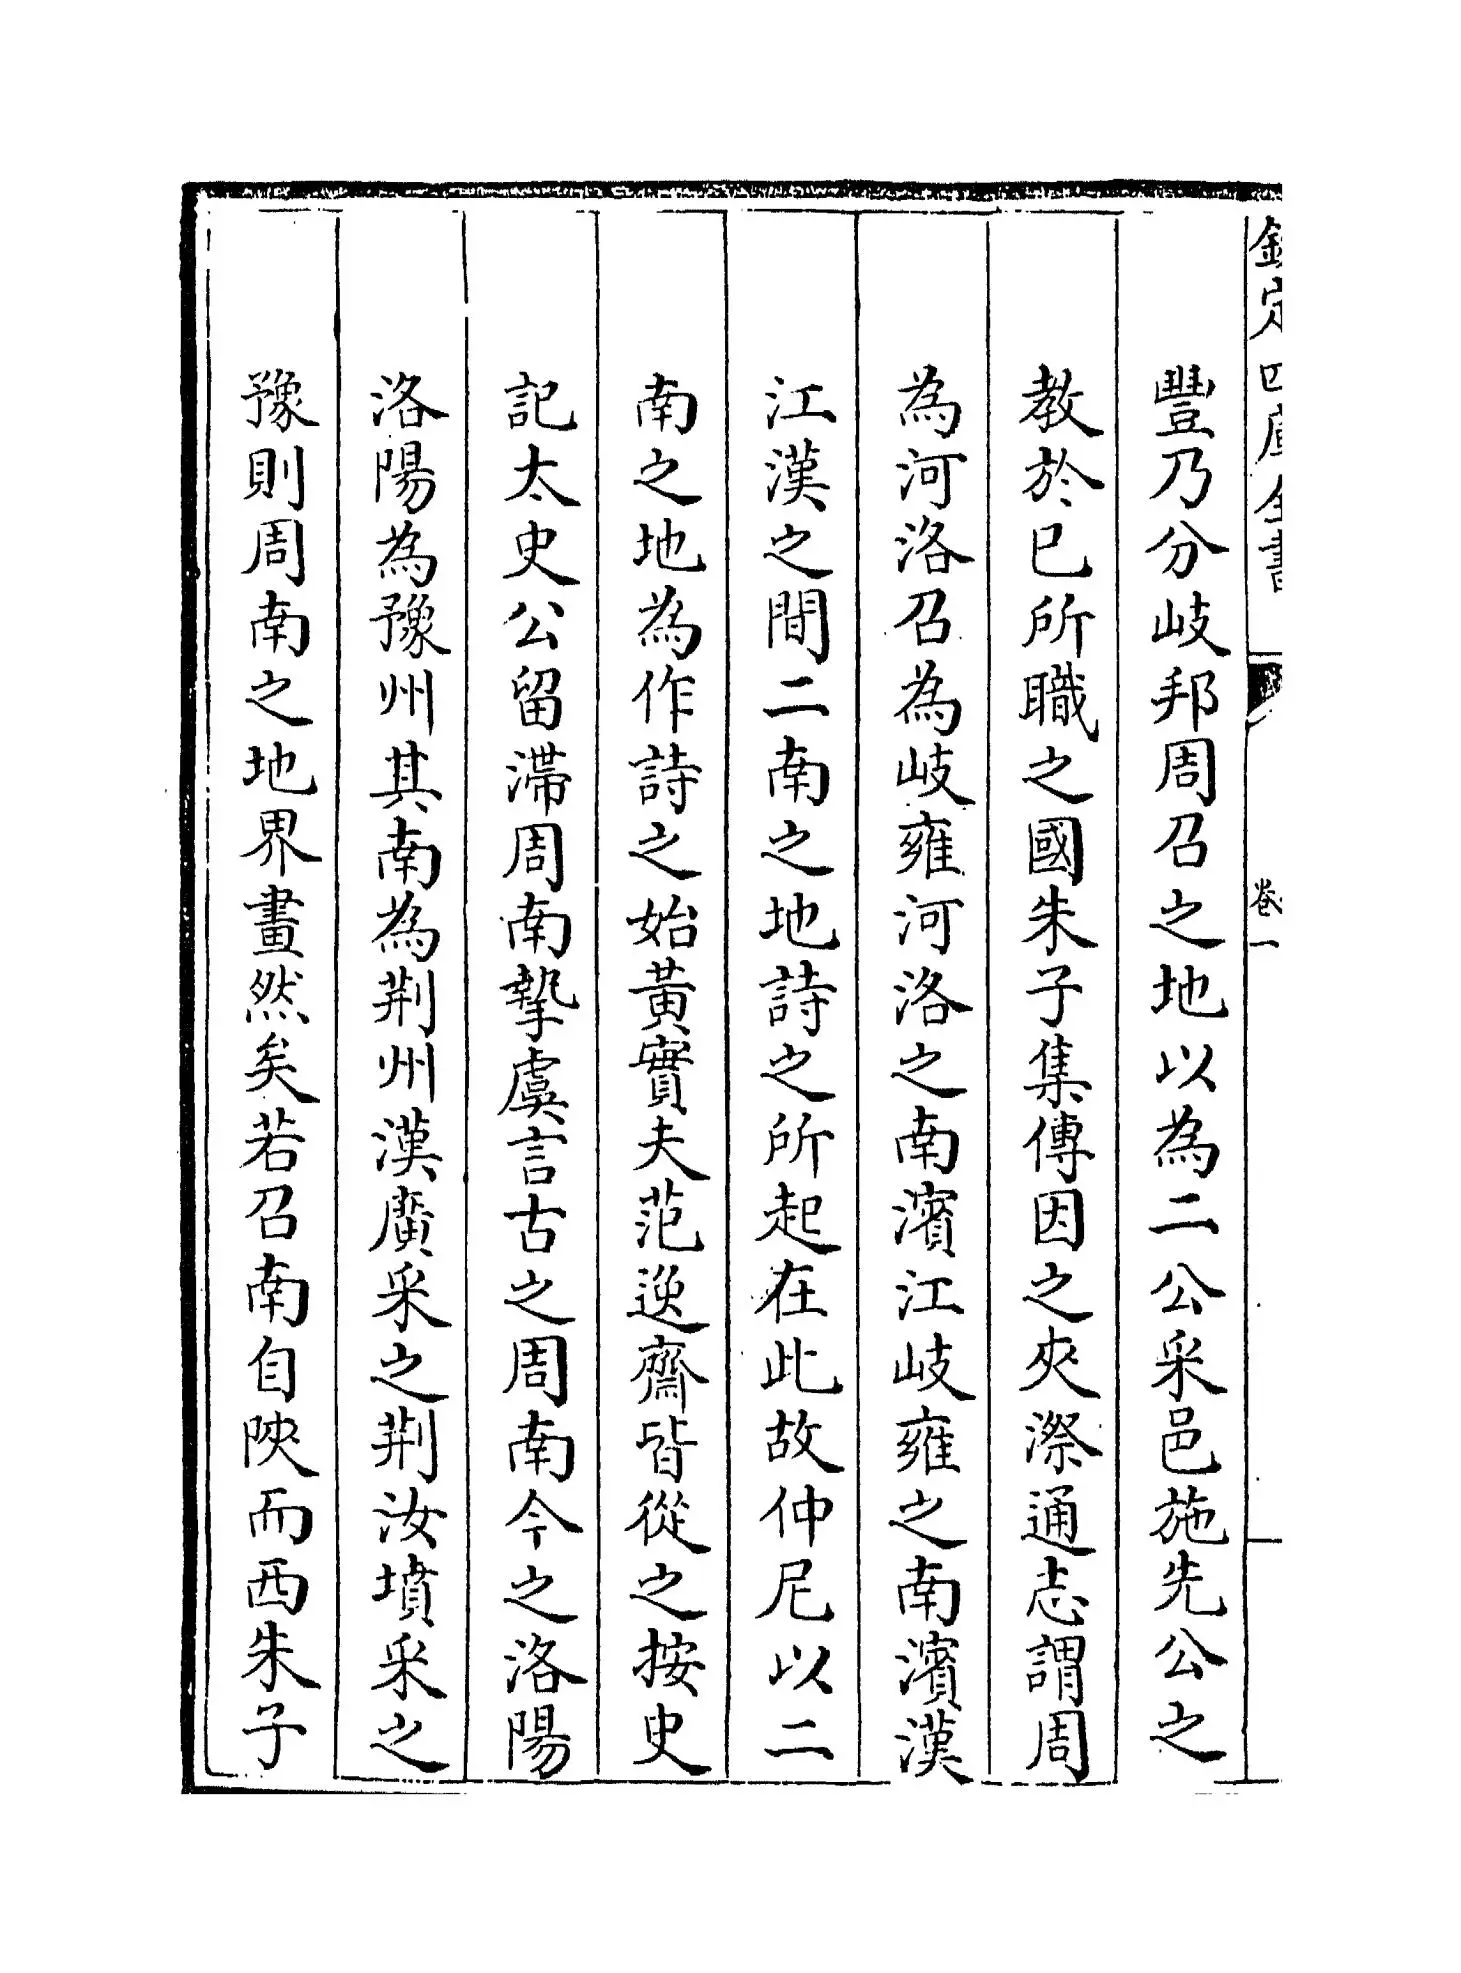 欽定四庫全書
卷一
豐乃分岐邦周召之地以為二公采邑施先公之
教於已所職之國朱子集傳因之夾漈通志謂周
為河洛召為岐雍河洛之南濱江岐雍之南濱漢
江漢之間二南之地詩之所起在此故仲尼以二
南之地為作詩之始黃實夫范逸齋皆從之按史
記太史公留滯周南摯虞言古之周南今之洛陽
洛陽為豫州其南為荆州漢廣采之荆汝墳采之
豫則周南之地界畫然矣若召南自陜而西朱子